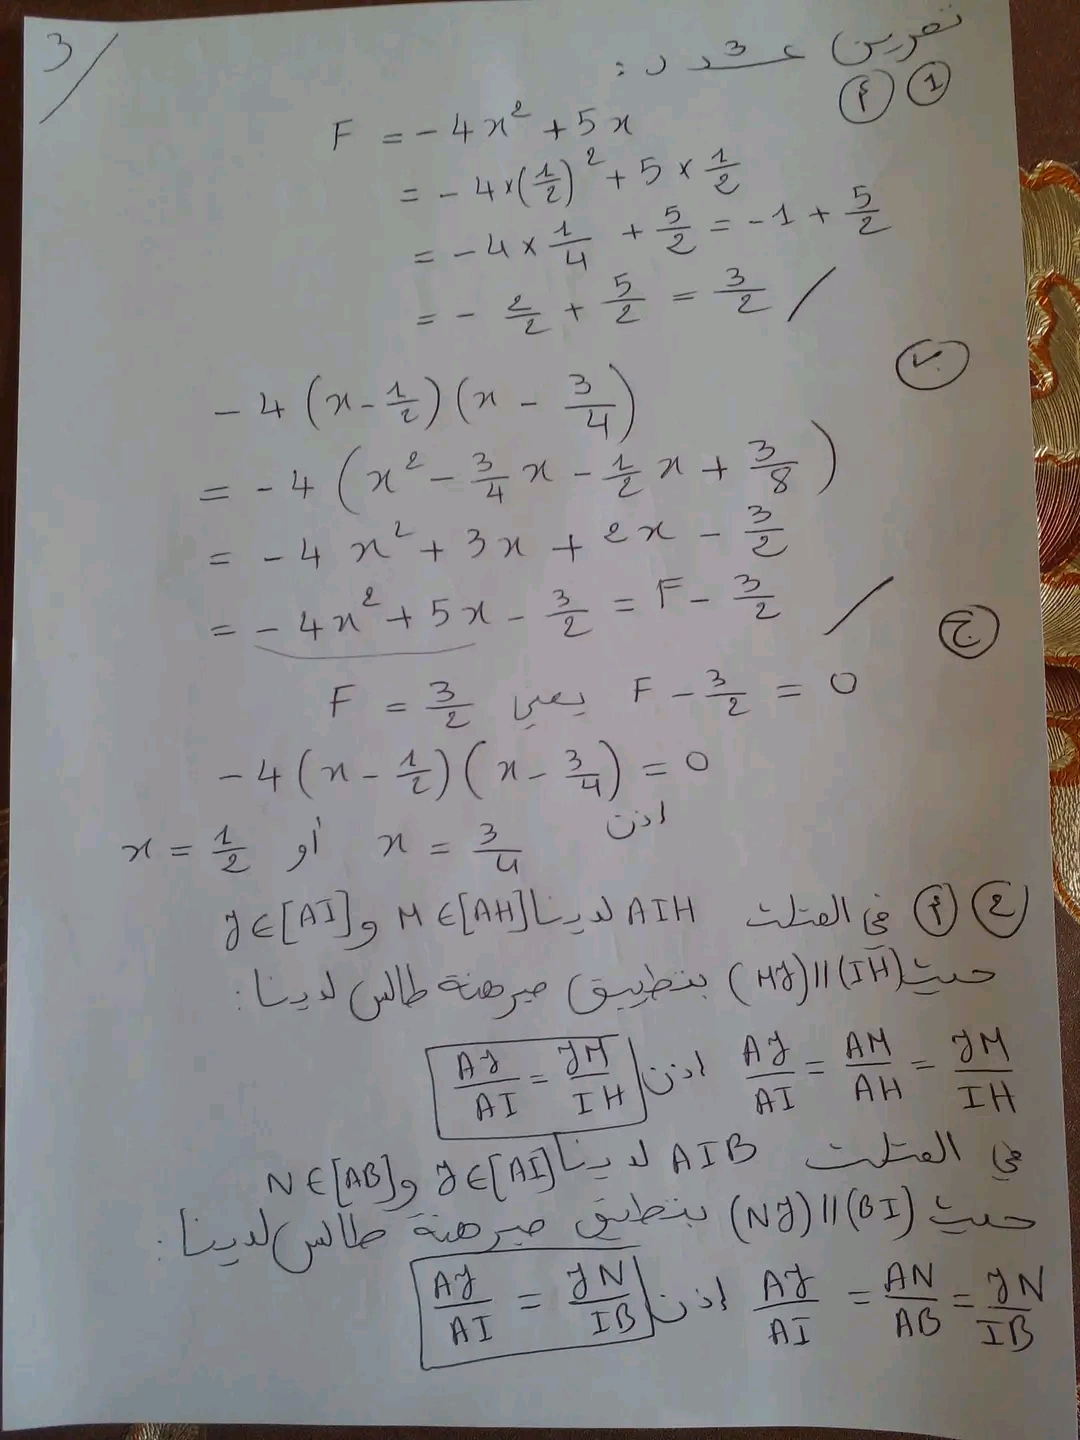 3/
تمرين عـــدد 3 :
① أ
F = -4x² + 5x
= -4×(1/2)² + 5 × 1/2
= -4 × 1/4 + 5/2 = -1 + 5/2
= - 2/2 + 5/2 = 3/2
ب
-4 (x - 1/2) (x - 3/4)
= -4 (x² - 3/4 x - 1/2 x + 3/8)
= -4x² + 3x + 2x - 3/2
= -4x² + 5x - 3/2 = F - 3/2
ج
F = 3/2 يعني F - 3/2 = 0
-4 (x - 1/2) (x - 3/4) = 0
اذن
x = 1/2 أو x = 3/4
② أ في المثلث AIH لدينا M ∈ [AH] و J ∈ [AI]
حيث (MJ) // (IH) بتطبيق مبرهنة طالس لدينا :
AJ/AI = AM/AH = JM/IH اذن AJ/AI = JM/IH
في المثلث AIB لدينا J ∈ [AI] و N ∈ [AB]
حيث (NJ) // (BI) بتطبيق مبرهنة طالس لدينا :
AJ/AI = AN/AB = JN/IB اذن AJ/AI = JN/IB